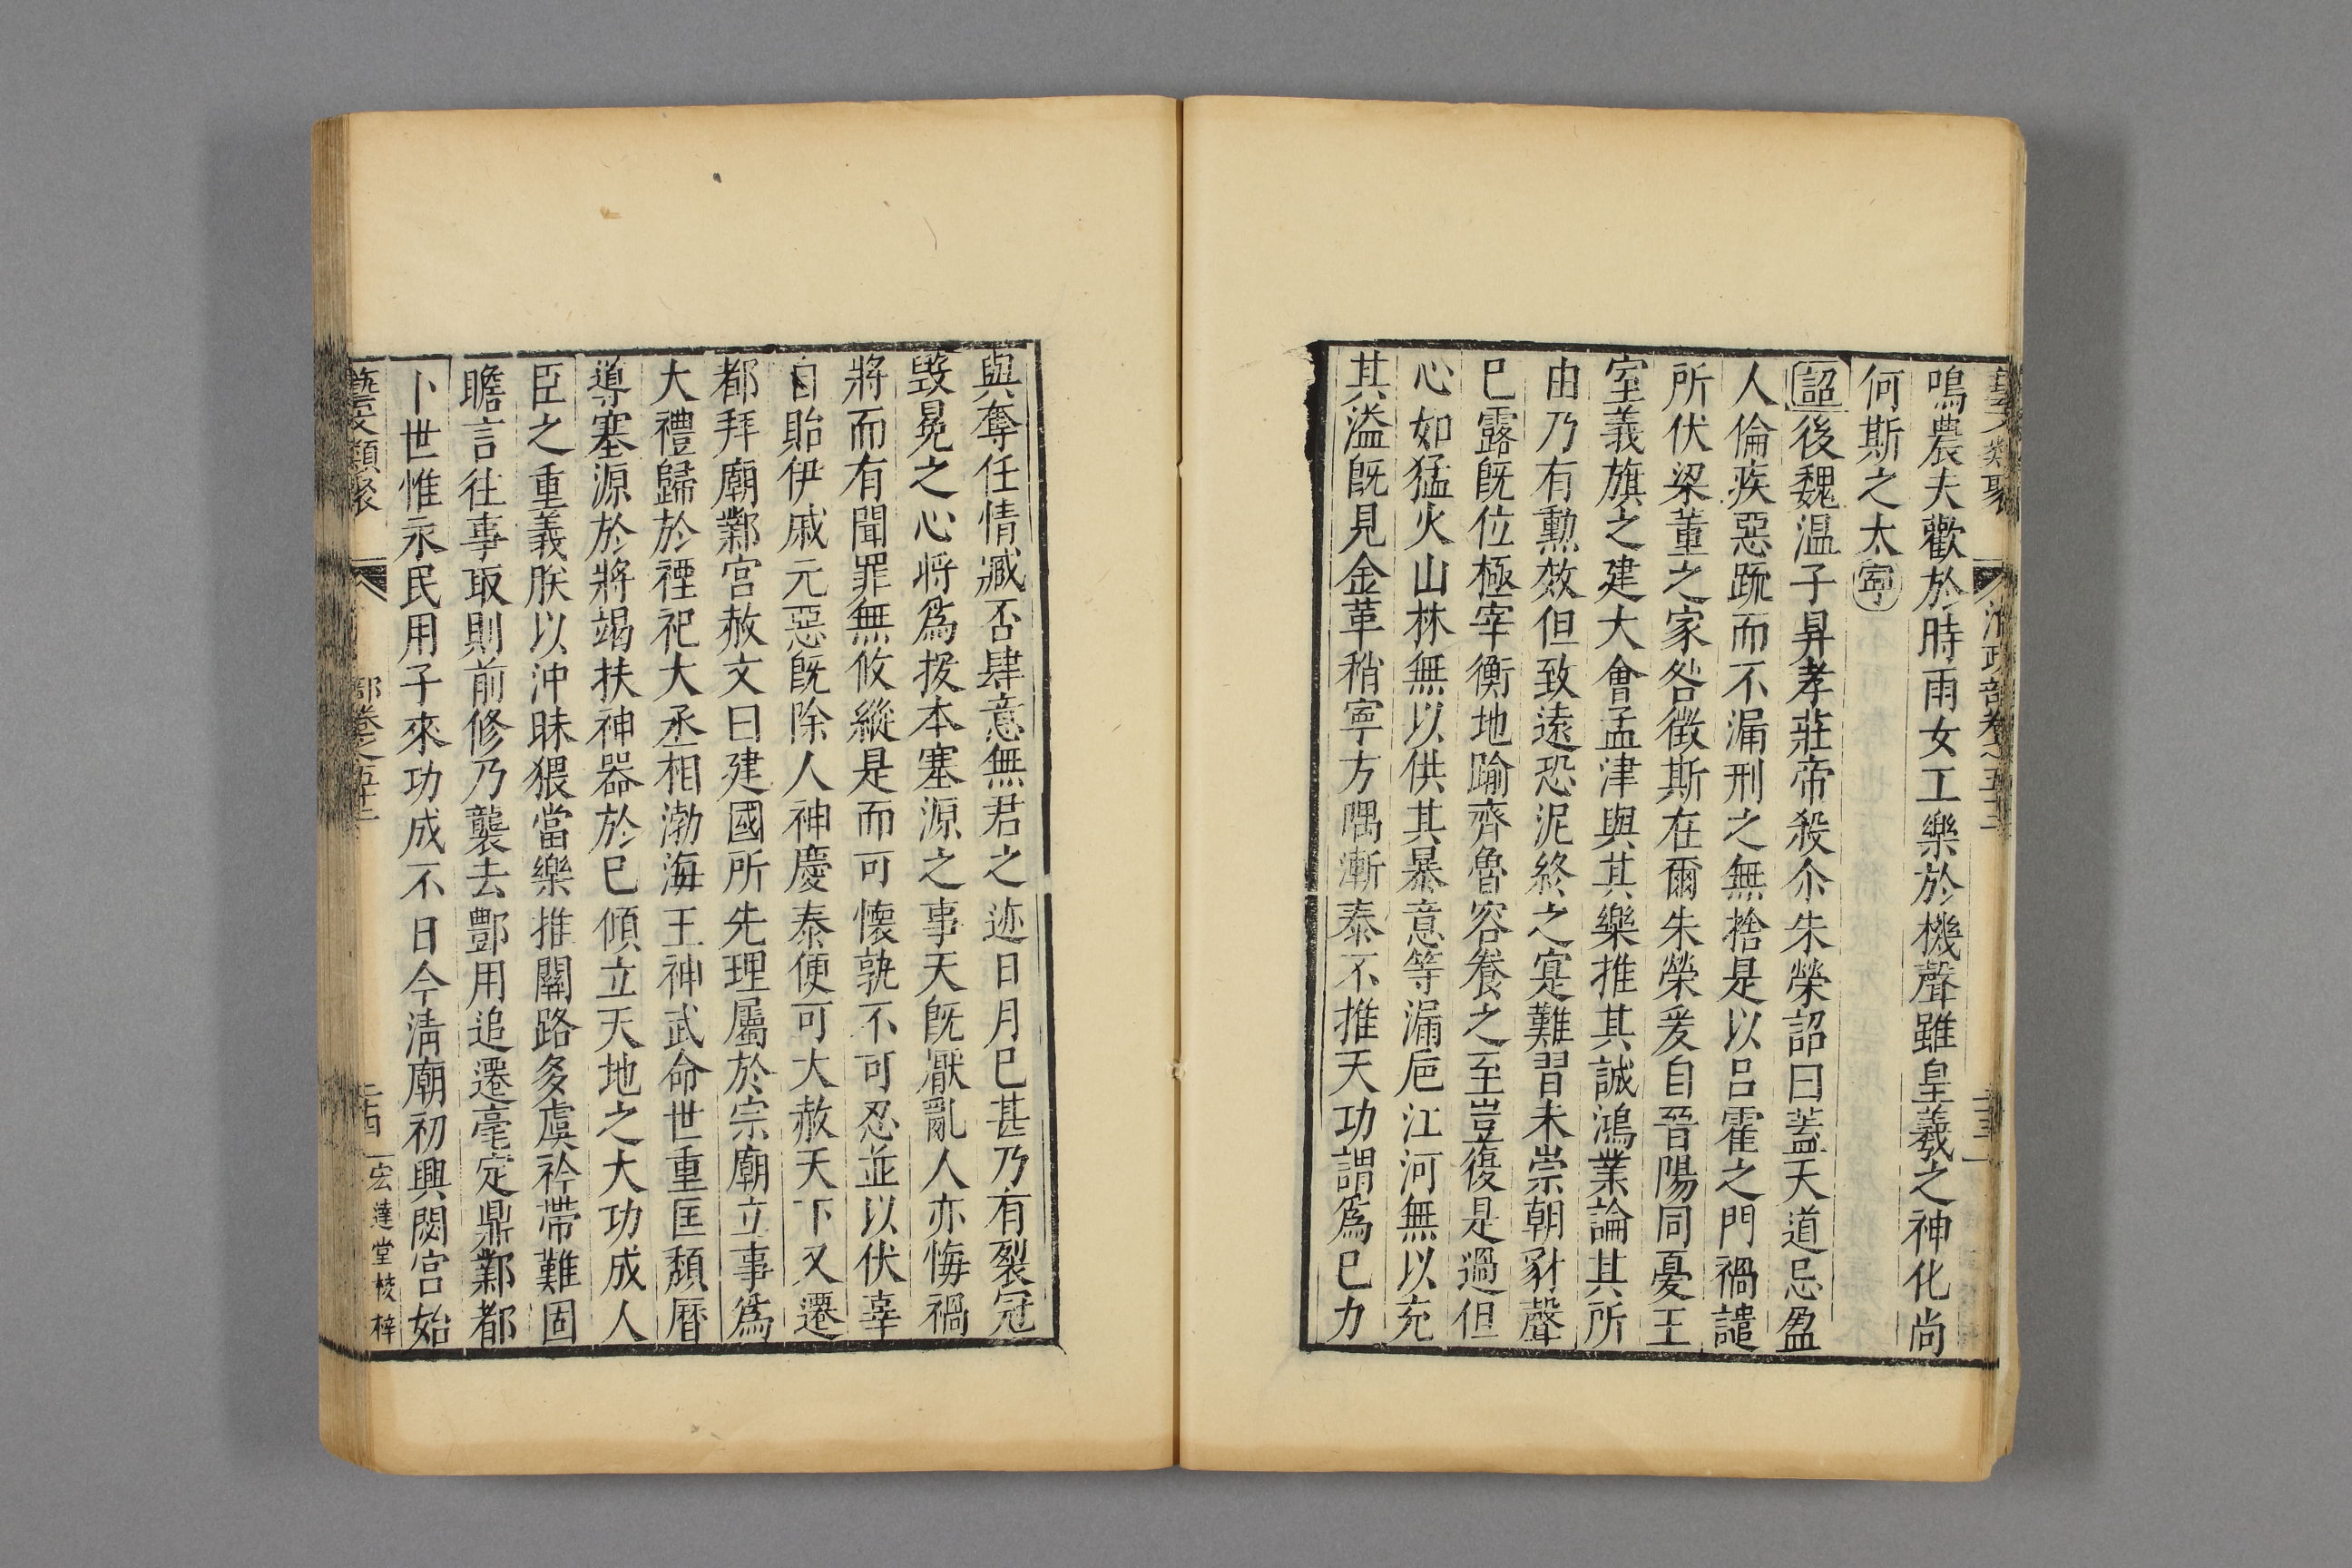 鳴農夫歡於時雨女工樂於機聲雖皇羲之神化尚
何斯之太寜
詔後魏温子昇孝莊帝殺尒朱榮詔曰蓋天道忌盈
人倫疾惡䟽而不漏刑之無捨是以呂霍之門禍譴
所伏梁董之家咎徴斯在爾朱榮爰自晉陽同憂王
室義旗之建大會孟津與其樂推其誠鴻業論其所
由乃有勲效但致遠恐泥終之寔難習未崇朝豺聲
巳露旣位極宰衡地踰齊魯容養之至豈復是過但
心如猛火山林無以供其暴意等漏巵江河無以充
其溢旣見金革稍寧方隅漸泰不推天功謂爲巳力
與奪任情臧否肆意無君之迹日月巳甚乃有裂冠
毀冕之心將爲拔本塞源之事天旣厭亂人亦悔禍
將而有聞罪無攸縱是而可懐孰不可忍並以伏辜
自貽伊戚元惡旣除人神慶泰便可大赦天下又遷
都拜廟鄴宮赦文曰建國所先理屬於宗廟立事爲
大禮歸於禋祀大丞相渤海王神武命世重匡頹曆
導塞源於將竭扶神器於巳傾立天地之大功成人
臣之重義朕以沖昧猥當樂推關路多虞衿帶難固
瞻言往事取則前修乃襲去酆用追遷亳定鼎鄴都
卜世惟永民用子來功成不日今清廟初興閟宮始
藝文類聚
部卷之五十二
二十四
宏達堂校梓